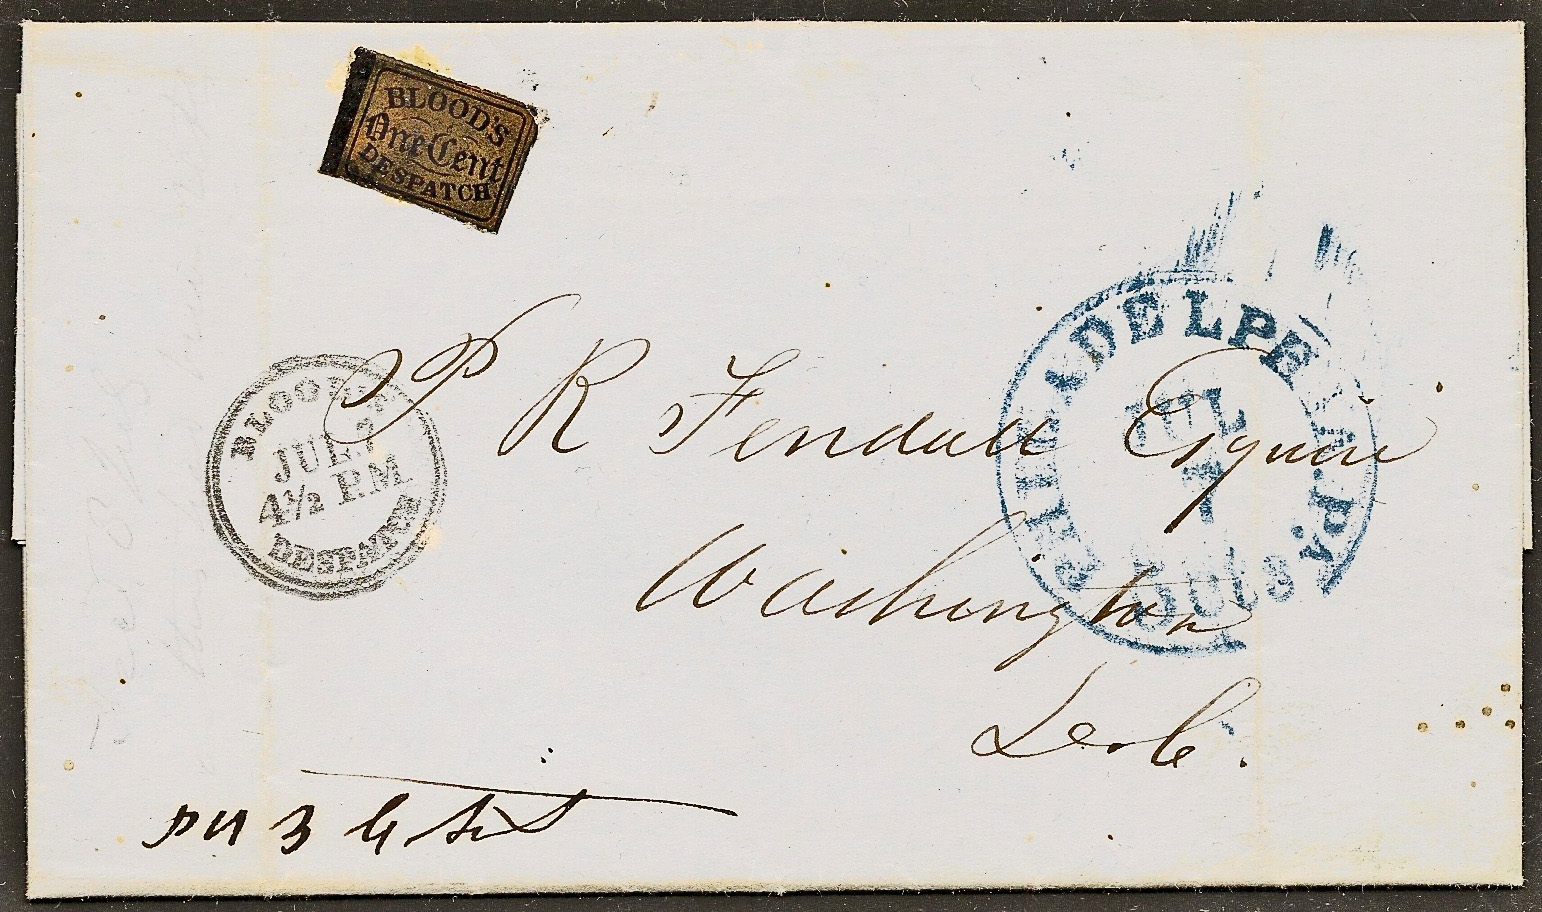 BLOOD'S
One Cent
DESPATCH
BLOOD'S
JUL 7
4½ P.M
DESPATCH
PHILADELPHIA Pa.
JUL
7
5 cts
P R Fendall Esquire
Washington
D. C.